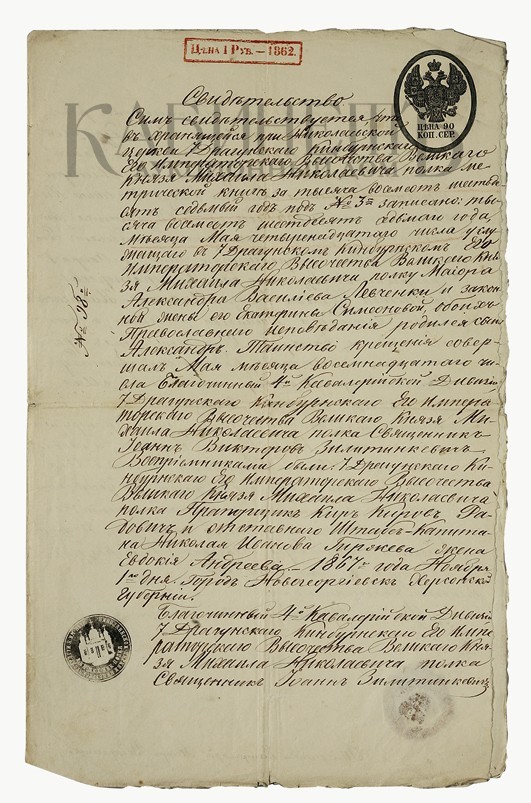 Цѣна 1 Руб. — 1862.
ЦѢНА 90
КОП. СЕР.
Свидѣтельство
Симъ свидѣтельствуется что
въ хранящейся при Николаевской
церкви 7 Драгунскаго Кинбурнскаго
Его Императорскаго Высочества Великаго
Князя Михаила Николаевича полка ме-
трической книгѣ за тысяча восемьсотъ шестьде-
сятъ седьмый годъ подъ № 3м записано: ты-
сяча восемьсотъ шестьдесятъ седьмаго года,
мѣсяца Мая четырнадцатаго числа у слу-
жащаго въ 7 Драгунскомъ Кинбурнскомъ Его
Императорскаго Высочества Великаго Кня-
зя Михаила Николаевича полку Маіора
Александра Васильева Левченки и закон-
ной жены его Екатерины Симеоновой, обоихъ
Православнаго исповѣданія родился сынъ
Александръ. Таинство крещенія совер-
шалъ Мая мѣсяца восемнадцатаго чи-
сла Благочинный 4й Кавалерійской Дивизіи
7 Драгунскаго Кинбурнскаго Его Импера-
торскаго Высочества Великаго Князя Ми-
хаила Николаевича полка Священникъ
Іоаннъ Викторовъ Зилитинкевичъ
Воспріемниками были: 7 Драгунскаго Кин-
бурнскаго Его Императорскаго Высочества
Великаго Князя Михаила Николаевича
полка Прапорщикъ Киръ
и отставнаго Штабсъ-Капита-
на Николая Иванова жена
Евдокія Андреева. — 1867го года Ноября
1го дня. Городъ Новогеоргіевскъ Херсонской
Губерніи.
№ 98й
Благочинный 4й Кавалерійской Дивизіи
7 Драгунскаго Кинбурнскаго Его Импе-
раторскаго Высочества Великаго Кня-
зя Михаила Николаевича полка
Священникъ Іоаннъ Зилитинкевичъ